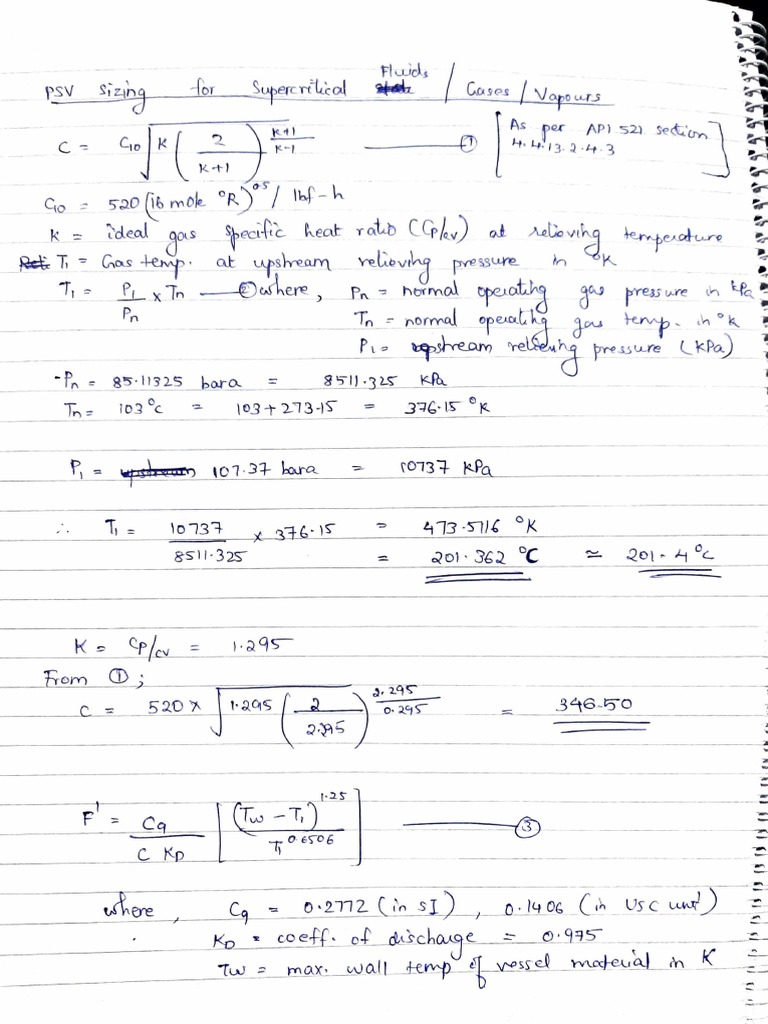 PSV sizing for Supercritical Fluids / Gases / Vapours
C = C10 √ K ( 2 / K+1 ) ^ K+1 / K-1 ——— ① [ As per API 521 section 4.4.13.2.4.3 ]
C10 = 520 (lb mole °R)^0.5 / lbf-h
K = ideal gas specific heat ratio (Cp/cv) at relieving temperature
T1 = Gas temp. at upstream relieving pressure in °K
T1 = P1 / Pn × Tn —— ② where, Pn = normal operating gas pressure in kPa
Tn = normal operating gas temp. in °K
P1 = upstream relieving pressure (kPa)
-Pn = 85.11325 bara = 8511.325 kPa
Tn = 103°C = 103+273.15 = 376.15 °K
P1 = 107.37 bara = 10737 kPa
∴ T1 = 10737 / 8511.325 × 376.15 = 473.5116 °K
= 201.362 °C ≃ 201.4°C
K = Cp/cv = 1.295
From ① ;
C = 520 × √ 1.295 ( 2 / 2.295 ) ^ 2.295 / 0.295 = 346.50
F' = C9 / C KD [ (Tw - T1)^1.25 / T1^0.6506 ] ——— ③
where, C9 = 0.2772 (in SI), 0.1406 (in USC unit)
KD = coeff. of discharge = 0.975
TW = max. wall temp of vessel material in K